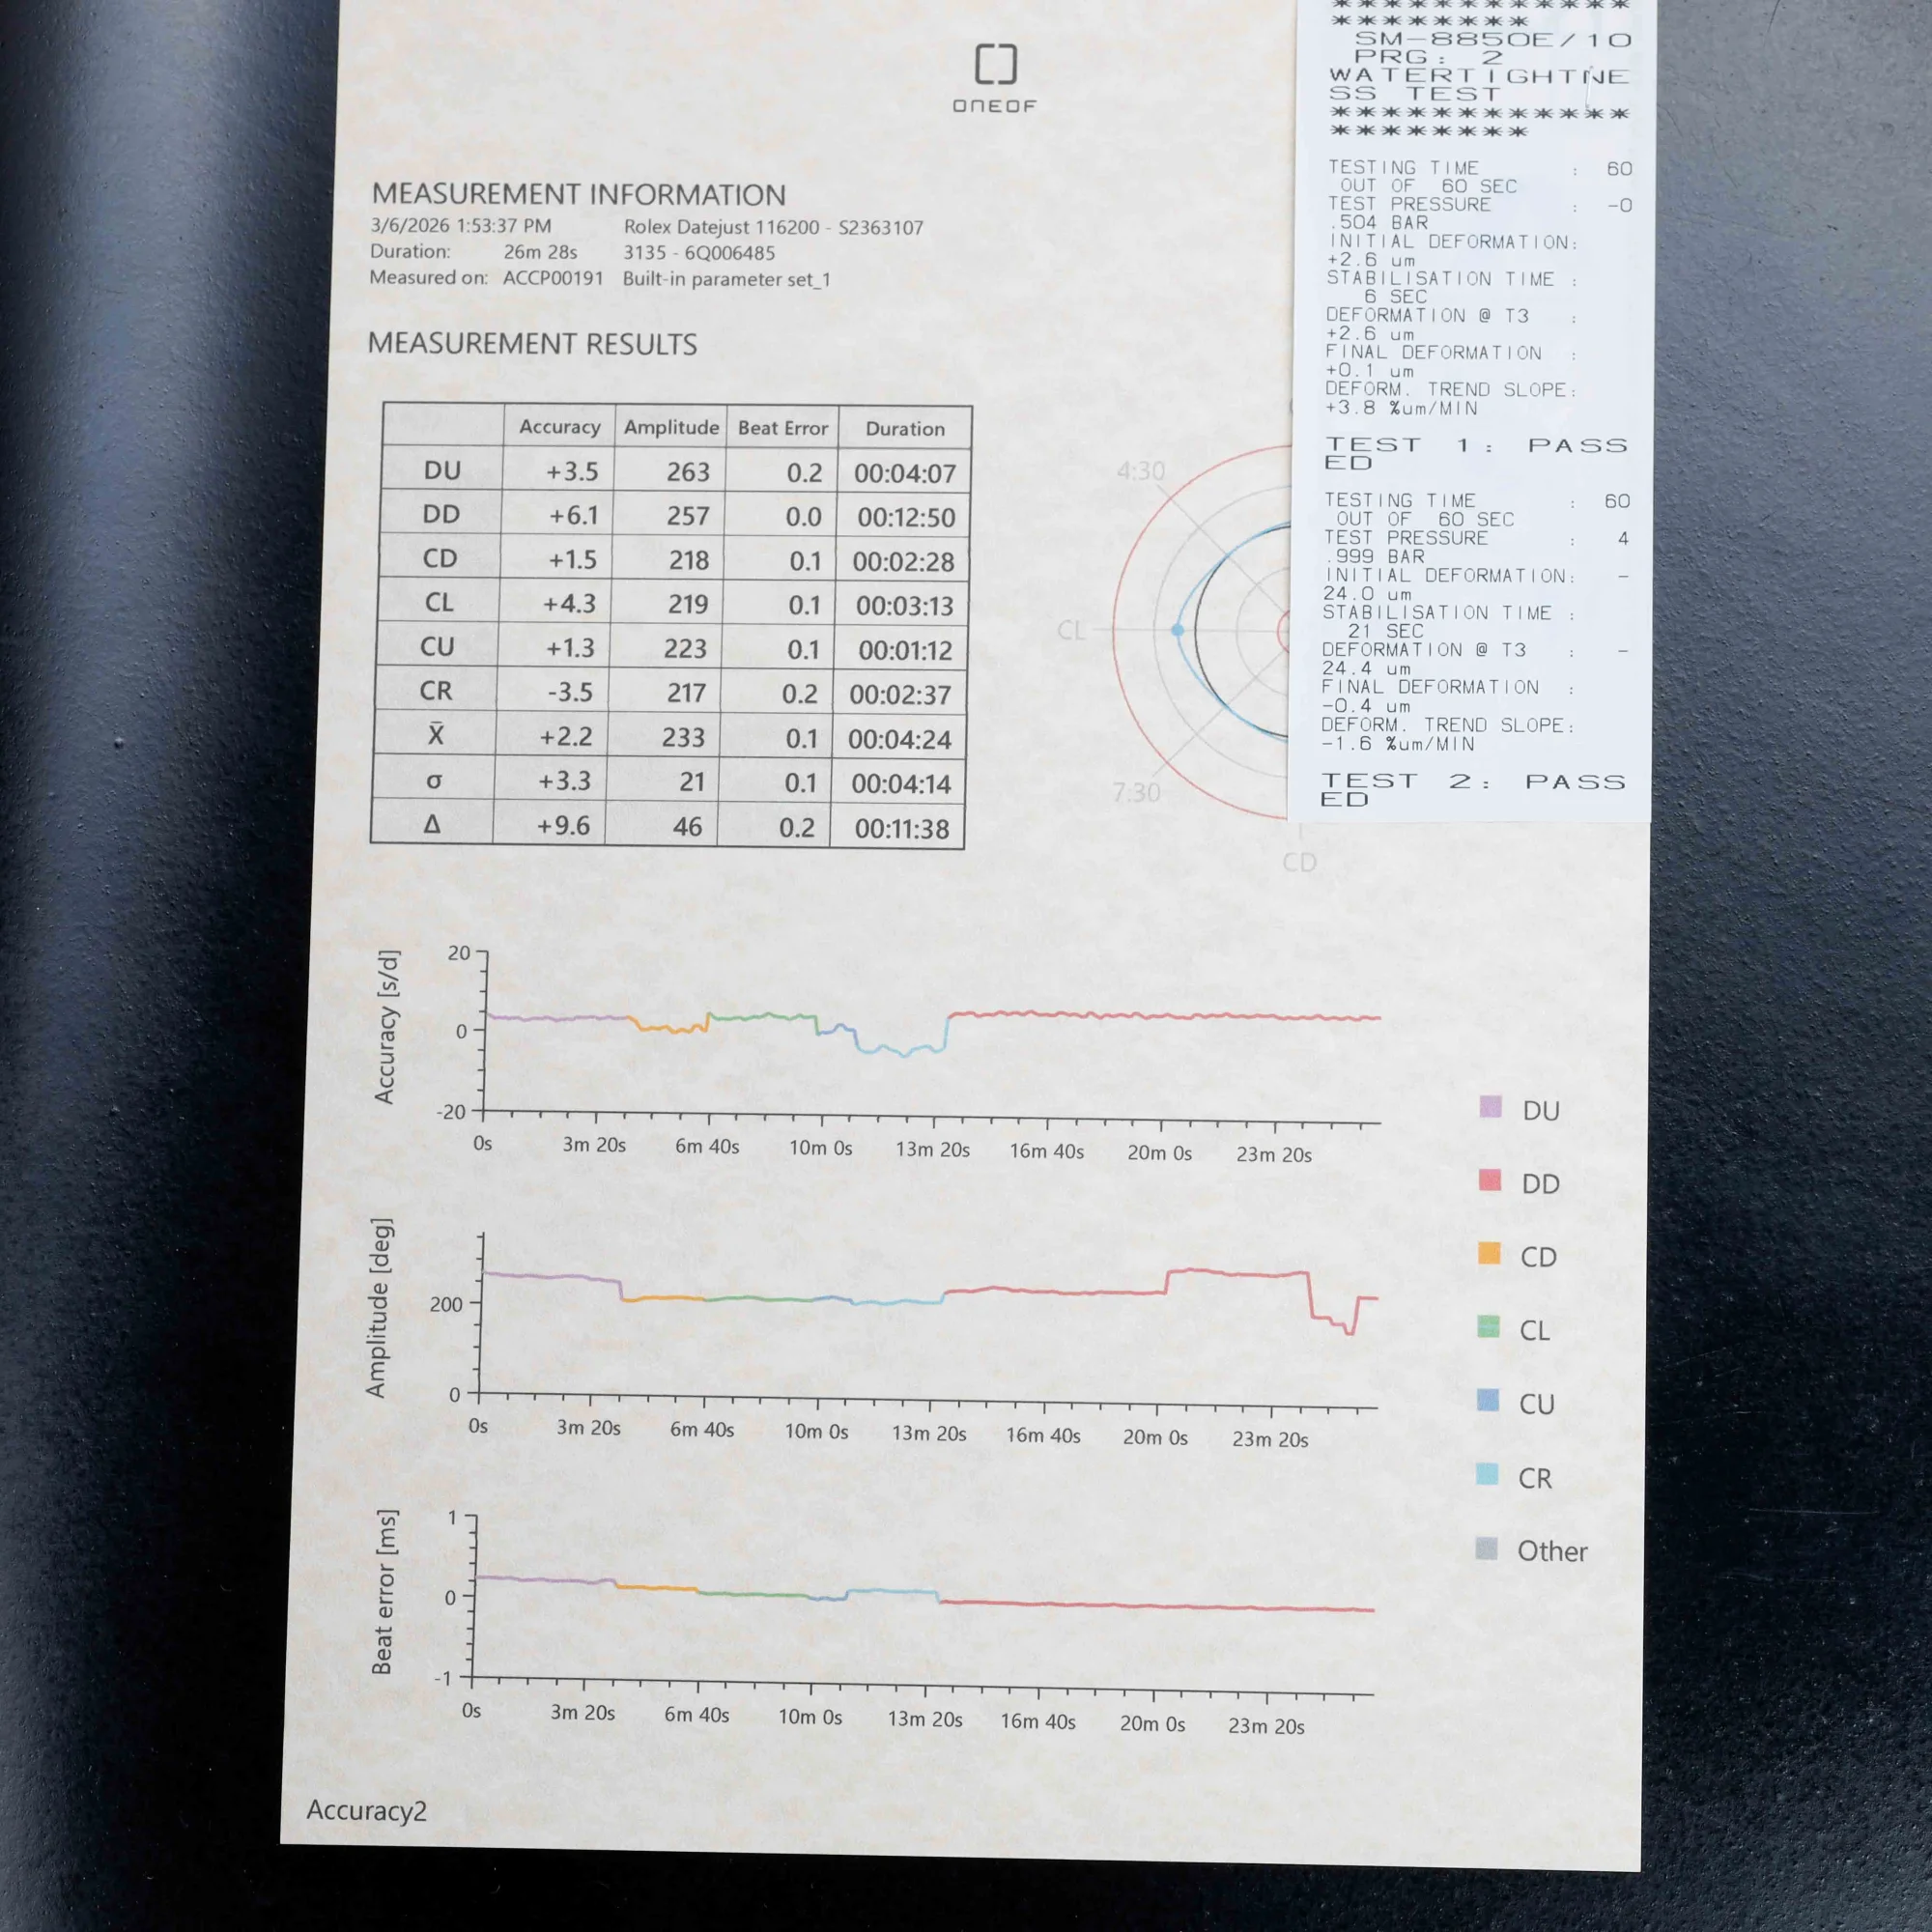 ONEOF
MEASUREMENT INFORMATION
3/6/2026 1:53:37 PM Rolex Datejust 116200 - S2363107
Duration: 26m 28s 3135 - 6Q006485
Measured on: ACCP00191 Built-in parameter set_1
MEASUREMENT RESULTS
Accuracy Amplitude Beat Error Duration
DU +3.5 263 0.2 00:04:07
DD +6.1 257 0.0 00:12:50
CD +1.5 218 0.1 00:02:28
CL +4.3 219 0.1 00:03:13
CU +1.3 223 0.1 00:01:12
CR -3.5 217 0.2 00:02:37
X̄ +2.2 233 0.1 00:04:24
σ +3.3 21 0.1 00:04:14
Δ +9.6 46 0.2 00:11:38
4:30
CL
7:30
CD
************
********
SM-8850E/10
PRG: 2
WATERTIGHTNE
SS TEST
************
********
TESTING TIME : 60
OUT OF 60 SEC
TEST PRESSURE : -0
.504 BAR
INITIAL DEFORMATION:
+2.6 um
STABILISATION TIME :
6 SEC
DEFORMATION @ T3 :
+2.6 um
FINAL DEFORMATION :
+0.1 um
DEFORM. TREND SLOPE:
+3.8 %um/MIN
TEST 1: PASS
ED
TESTING TIME : 60
OUT OF 60 SEC
TEST PRESSURE : 4
.999 BAR
INITIAL DEFORMATION: -
24.0 um
STABILISATION TIME :
21 SEC
DEFORMATION @ T3 : -
24.4 um
FINAL DEFORMATION :
-0.4 um
DEFORM. TREND SLOPE:
-1.6 %um/MIN
TEST 2: PASS
ED
Accuracy [s/d]
20
0
-20
0s 3m 20s 6m 40s 10m 0s 13m 20s 16m 40s 20m 0s 23m 20s
Amplitude [deg]
200
0
0s 3m 20s 6m 40s 10m 0s 13m 20s 16m 40s 20m 0s 23m 20s
Beat error [ms]
1
0
-1
0s 3m 20s 6m 40s 10m 0s 13m 20s 16m 40s 20m 0s 23m 20s
DU
DD
CD
CL
CU
CR
Other
Accuracy2